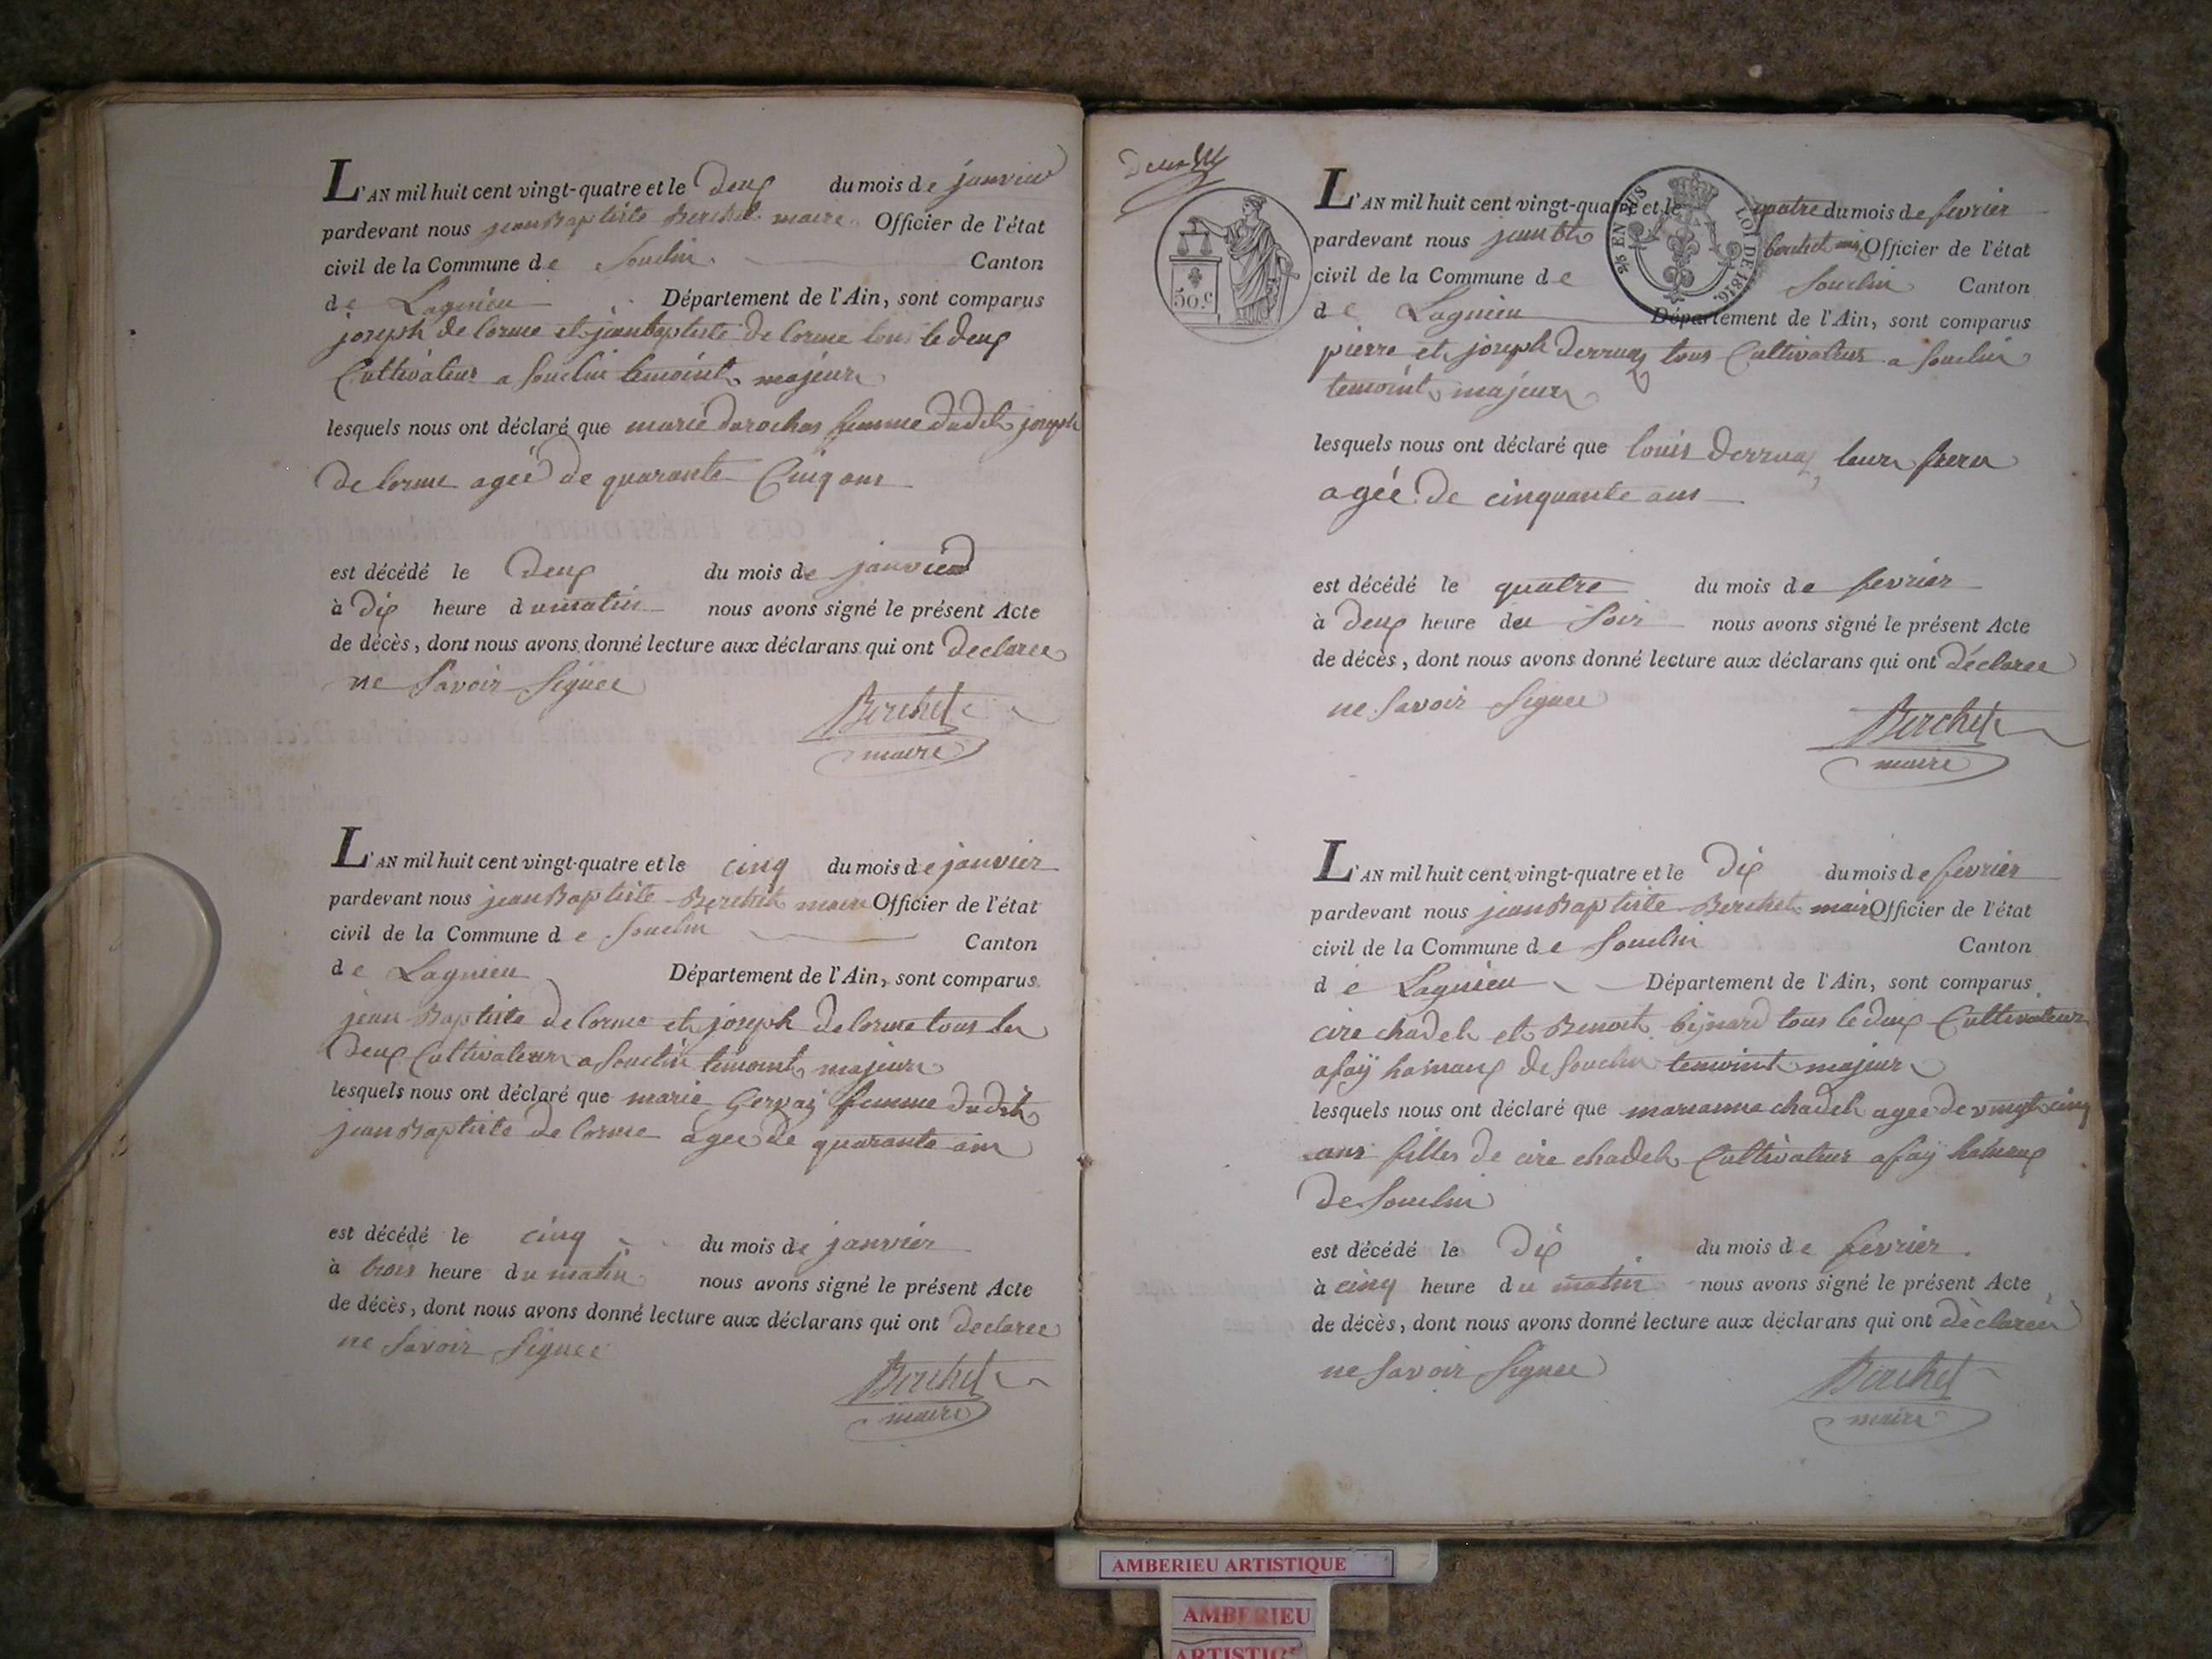 L'AN mil huit cent vingt-quatre et le deux du mois de janvier
pardevant nous jean Baptiste Berchet maire Officier de l'état
civil de la Commune de Souclin Canton
de Lagnieu Département de l'Ain, sont comparus
joseph de lorme et jean baptiste de lorme tous le deux
Cultivateur a Souclin temoint majeur
lesquels nous ont déclaré que marie darochas femme dudit joseph
de lorme agée de quarante Cinq ans
est décédé le deux du mois de janvier
à dix heure du matin nous avons signé le présent Acte
de décès, dont nous avons donné lecture aux déclarans qui ont declaree
ne Savoir Signee
Berchet
maire
L'AN mil huit cent vingt-quatre et le cinq du mois de janvier
pardevant nous jean Baptiste Berchet maire Officier de l'état
civil de la Commune de Souclin Canton
de Lagnieu Département de l'Ain, sont comparus
jean Baptiste de lorme et joseph de lorme tous les
deux Cultivateur a Souclin temoint majeur
lesquels nous ont déclaré que marie Gervay femme dudit
jean Baptiste de lorme agee de quarante ans
est décédé le cinq du mois de janvier
à trois heure du matin nous avons signé le présent Acte
de décès, dont nous avons donné lecture aux déclarans qui ont declaree
ne Savoir Signee
Berchet
maire
L'AN mil huit cent vingt-quatre et le quatre du mois de fevrier
pardevant nous jean bte berchet Officier de l'état
civil de la Commune de Souclin Canton
de Lagnieu Département de l'Ain, sont comparus
pierre et joseph derruaz tous Cultivateur a Souclin
temoint majeur
lesquels nous ont déclaré que louis derruaz leur frere
agée de cinquante ans
est décédé le quatre du mois de fevrier
à deux heure du Soir nous avons signé le présent Acte
de décès, dont nous avons donné lecture aux déclarans qui ont déclaree
ne Savoir Signee
Berchet
maire
50.c
EN SUS
LOI DE 1816.
L'AN mil huit cent vingt-quatre et le dix du mois de fevrier
pardevant nous jean Baptiste Berchet mair Officier de l'état
civil de la Commune de Souclin Canton
de Lagnieu Département de l'Ain, sont comparus
cire chadel et Benoit bijnard tous le deux Cultivateur
a fay hameaux de Souclin temoint majeur
lesquels nous ont déclaré que marianne chadel agee de vingt cinq
ans filles de cire chadel Cultivateur a fay hameaux
de Souclin
est décédé le dix du mois de fevrier
à cinq heure du matin nous avons signé le présent Acte
de décès, dont nous avons donné lecture aux déclarans qui ont déclaree
ne Savoir Signee
Berchet
maire
AMBERIEU ARTISTIQUE
AMBERIEU
ARTISTIQUE